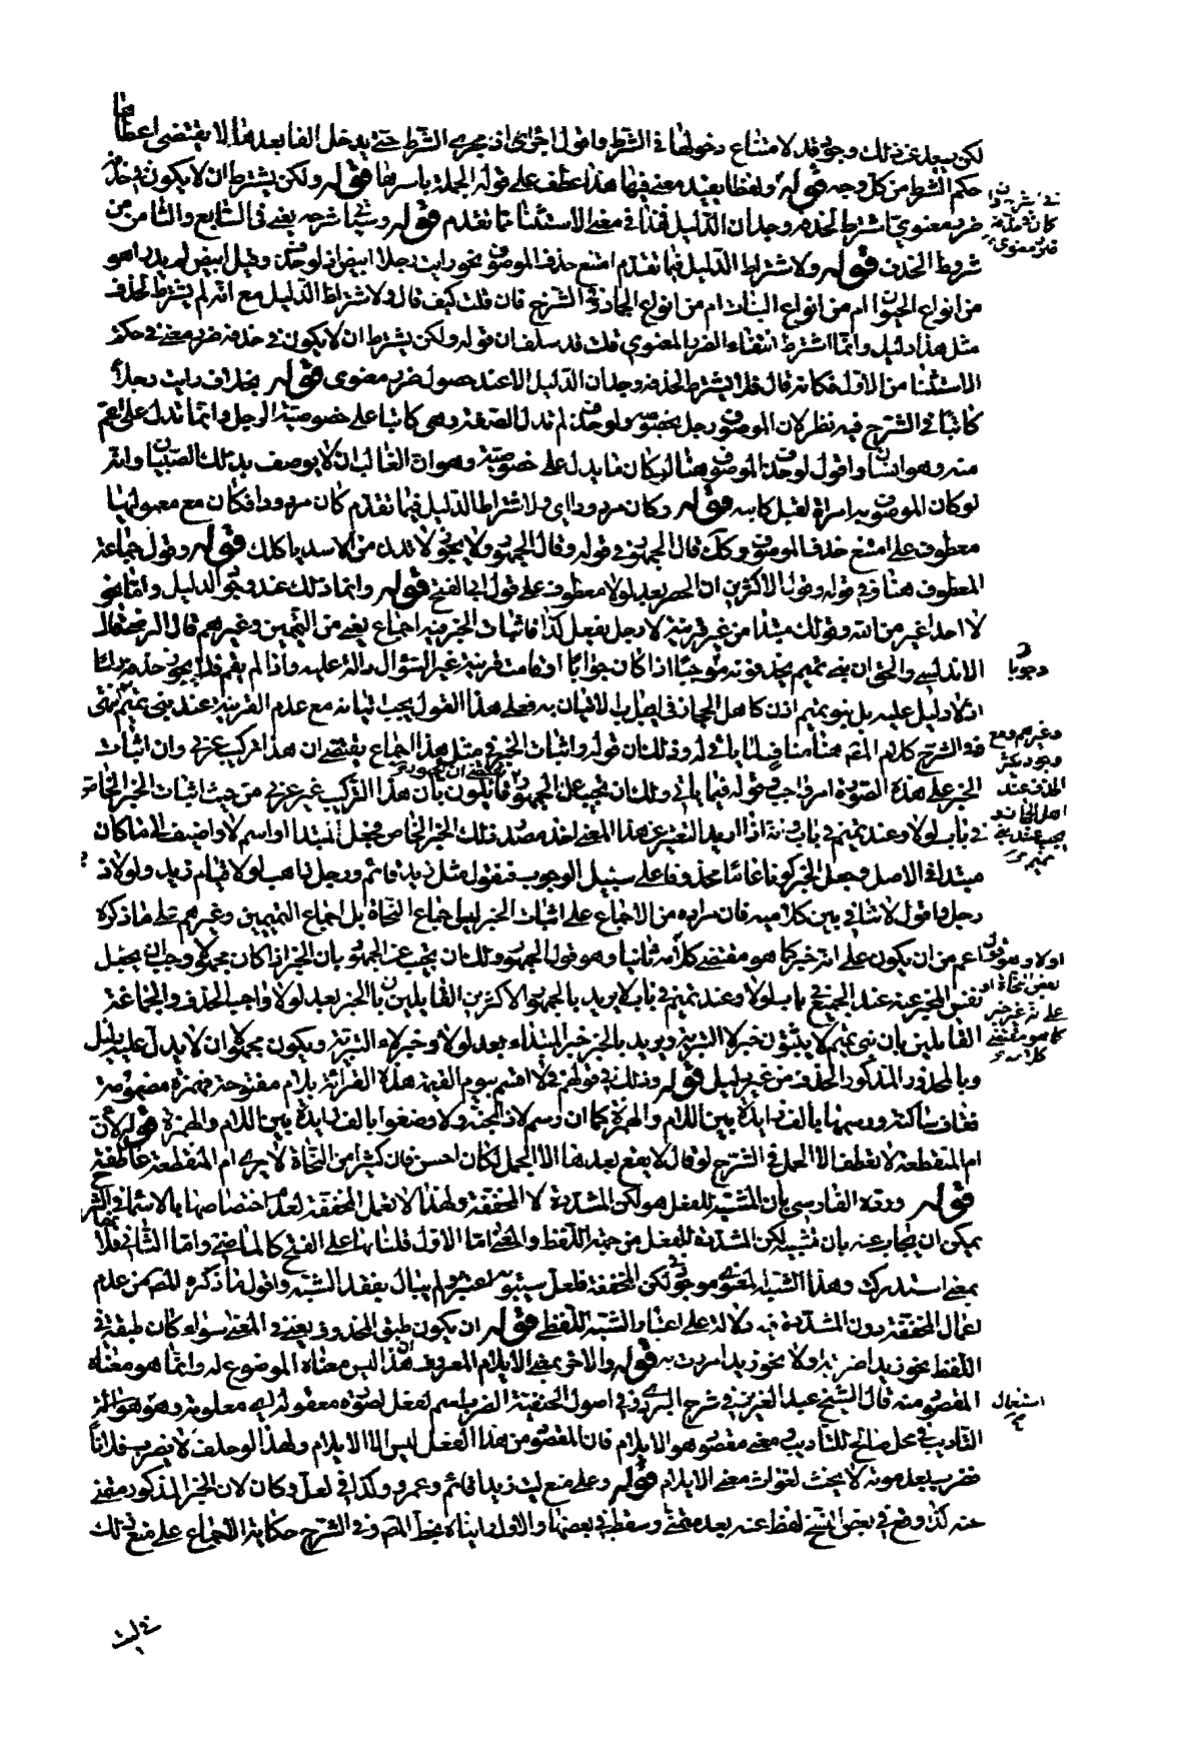 لكن يبعد عن ذلك وجوقد لامتناع دخولها في الشرط واقول اجرى اذن مجرى الشرط حتى يدخل الفا بعدها لا يقتضى اعطاها
حكم الشرط من كل وجه قوله ولفظا يفيد معنى فيها هذا عطف على قوله الجملة باسرها قوله ولكن يشترط ان لا يكون في حذفه
ضرر معنوي اشترط لحذفه وجدان الدليل فهذا في معنى الاستثنا مما تقدم قوله وسيجئ شرحه يعنى في السابع والثامن من
شروط الحذف قوله ولاشتراط الدليل فيما تقدم امتنع حذف الموصوف نحو رايت رجلا ابيض اذ لو حذف وقيل ابيض لم يدر اهو
من انواع الحيوان ام من انواع النبات ام من انواع الجماد وفي الشرح فان قلت كيف قال ولاشتراط الدليل مع انه لم يشترط لحذف
مثل هذا دليل وانما اشترط انتفاء الضرر المعنوي قلت قد سلف ان قوله ولكن يشترط ان لا يكون في حذفه ضرر معنى في حكم
الاستثنا من الاول فكانه قال فلا يشترط لحذفه وجدان الدليل الا عند حصول ضرر معنوى قوله بخلاف رايت رجلا
كاتبا في الشرح فيه نظر لان الموصوف رجل بخصوصه ولو حذف لم تدل الصفة وهى كاتبا على خصوصية الرجل وانما تدل على اعم
منه وهو انسان واقول لو حذف الموصوف هنا لكان ما يدل على خصوصيته وهو ان الغالب ان لا يوصف بذلك الصبيان وانه
لو كان الموصوف به امراة لقيل كاتبة قوله وكان مردودا اي ولاشتراط الدليل فيما تقدم كان مردودا فكان مع معموليها
معطوف على امتنع حذف الموصوف وكذا قال الجمهور في قوله وقال الجمهور ولا يجوز لا تدن من الاسد ياكلك قوله وقول جماعة
المعطوف هنا وفي قوله وقول الاكثرين ان الخبر بعد لولا معطوف على قول ابي الفتح قوله وانما ذلك عند وجود الدليل واما نحو
لا احد اغير من الله وقولك مبتدا من غير قرينة لا رجل يفعل كذا فاثبات الخبر فيه اجماع يعنى من التميمين وغيرهم قال الرضى قال
الاندلسي والحق ان بنى تميم يحذفونه وجوبا اذا كان جوابا او قامت قرينة غير السؤال دالة عليه واذا لم يقم فلا يجوز حذفه راسا
اذ لا دليل عليه بل بنو تميم اذن كاهل الحجاز في ايجاب الاتيان به فعلى هذا القول يجب اثباته مع عدم القرينة عند بنى تميم
وفي الشرح كلام المص هنا مناف لما ياتى له وذلك ان قوله واثبات الخبر في مثل هذا اجماع يقتضى ان هذا تركيب عربي وان اثبات
الخبر على هذه الصورة امر واجب قوله فيما ياتى ولك ان تجيب عن الجمهور قايلون بان هذا التركيب غير عربي من حيث اثبات الخبر الخاص
في باب لولا وعند تميم في باب لا اذا اريد التعبير عن هذا المعنى اخذ مصدر ذلك الخبر الخاص فجعل المبتدا او اسم لا واضيف الى ما كان
مبتدا في الاصل وجعل الخبر كونا عاما محذوفا على سبيل الوجوب فتقول مثل زيد قائم ورجل ذاهب لولا قيام زيد ولا ذهاب
رجل واقول لا تنافي بين كلاميه فان مراده من الاجماع على اثبات الخبر ليس اجماع النحاة بل اجماع التميمين وغيرهم على ما ذكره
اعم من ان يكون على انه خبر كما هو مقتضى كلامه ثانيا وهو قول الجمهور ولك ان تجيب عن الجمهور بان الخبر اذا كان مجهولا وجب ان يجعل
نفس المخبر عنه عند الجميع في باب لولا وعند تميم في باب لا يريد بالجمهور الاكثرين القايلين بان الخبر بعد لولا واجب الحذف والجماعة
القايلين بان بنى تميم لا يثبتون خبر لا التبرية ويريد بالخبر خبر المبتداء بعد لولا وخبر لاء التبرية ويكون مجهولا ان لا يدل عليه دليل
وبالمحذور المذكور الحذف من غير دليل قوله وذلك في قولهم في لا اقسم بيوم القيمة هذه القرائة بلام مفتوحة فهمزة مضمومة
فقاف ساكنة ورسمها بالف زايدة بين اللام والهمزة كما ان رسم لاذبحنه ولاوضعوا بالف زايدة بين اللام والهمزة قوله لان
ام المنقطعة لا تعطف الا الجمل في الشرح لو قال لا يقع بعدها الا الجمل لكان احسن فان كثيرا من النحاة لا يرى ام المنقطعة عاطفة
قوله ورده الفارسي بان المشبه للفعل هو لكن المشددة لا المخففة ولهذا لا تعمل المخففة لعدم اختصاصها بالاسما في الشرح
يمكن ان يجاب عنه بان تشبيه لكن المشددة للفعل من جهة اللفظ والمعنى اما الاول فلبنائها على الفتح كالماضي واما الثاني فلانها
بمعنى استدرك وهذا الشبه المعنوي موجود في لكن المخففة فلعل سيبويه اعتبره ولم يبال بفقد الشبه واقول ما ذكره المص من عدم
اعمال المخففة دون المشددة فيه دلالة على اعتبار الشبه اللفظي قوله ان يكون طبق المحذوف يعنى في المعنى سواء كان طبقه في
اللفظ نحو زيدا ضربته او لا نحو زيدا مررت به قوله والاخر بمعنى الايلام المعروف هذا ليس معناه الموضوع له وانما هو معناه
المقصود منه قال الشيخ عبد العزيز في شرح البزدوي في اصول الحنفية الضرب اسم لفعل بصورة معقولة اي معلومة وهو
التاديب في محل صالح للتاديب ومعنى مقصود هو الايلام فان المقصود من هذا الفعل ليس الا الايلام ولهذا لو حلف لا يضرب فلانا
فضربه بعد موته لا يحنث لفوات معنى الايلام قوله وعلى منع ليت زيدا قائم وعمرو وكذا في لعل وكان لان الخبر المذكور متمنى
عنه كذا وقع في بعض النسخ لفظ عنه بعد متمنى وسقط في بعضها والاول راينا بخط المص وفي الشرح حكاية الاجماع على منع ذلك
وجوبا
وغيرهم ومع
اهل الحجاز و
اولا وهو قول
بعض النحاة او
على انه غير خبر
كما هو مقتضى
كلامه
استعمال
في ليت